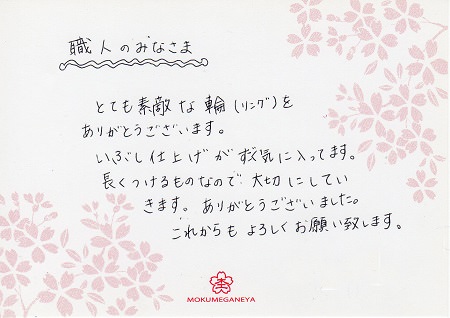 職人のみなさま
とても素敵な輪(リング)を
ありがとうございます。
いぶし仕上げが 気に入ってます。
長くつけるものなので 大切にしてい
きます。ありがとうございました。
これからも よろしく お願い致します。
MOKUMEGANEYA